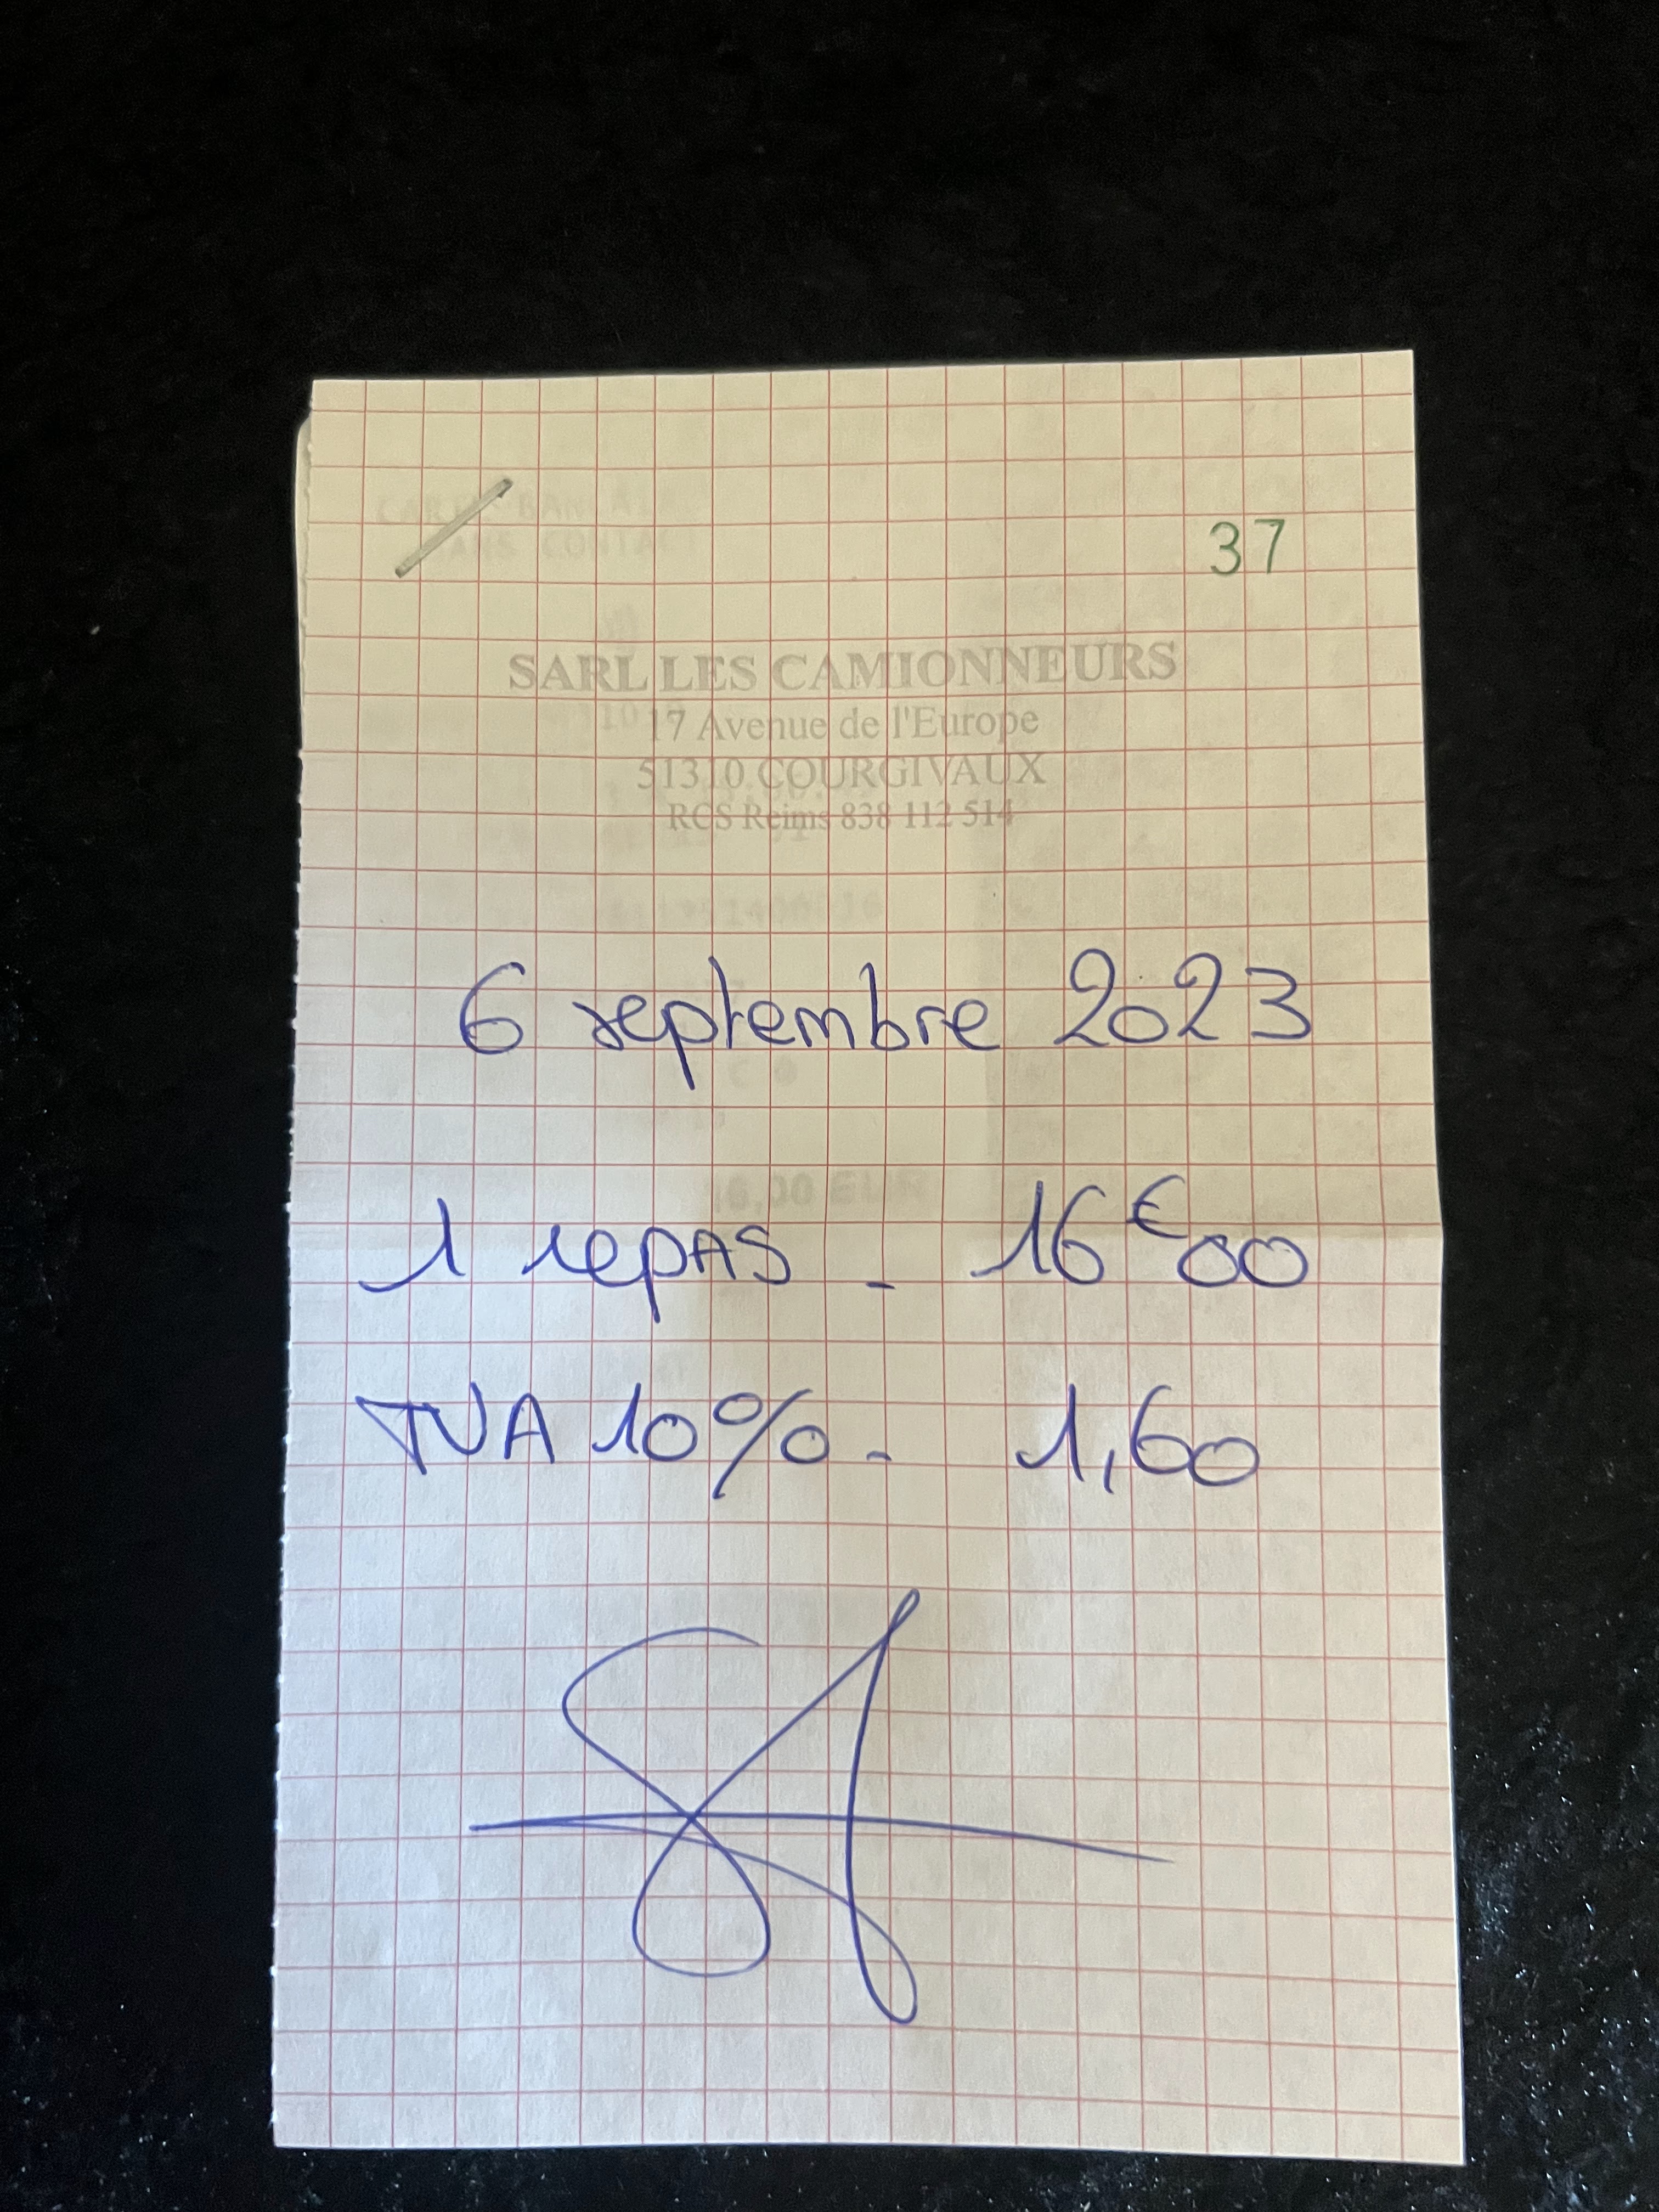 37
SARL LES CAMIONNEURS
17 Avenue de l'Europe
51310 COURGIVAUX
RCS Reims 838 112 514
6 septembre 2023
1 repAS - 16€00
TVA 10% - 1,60